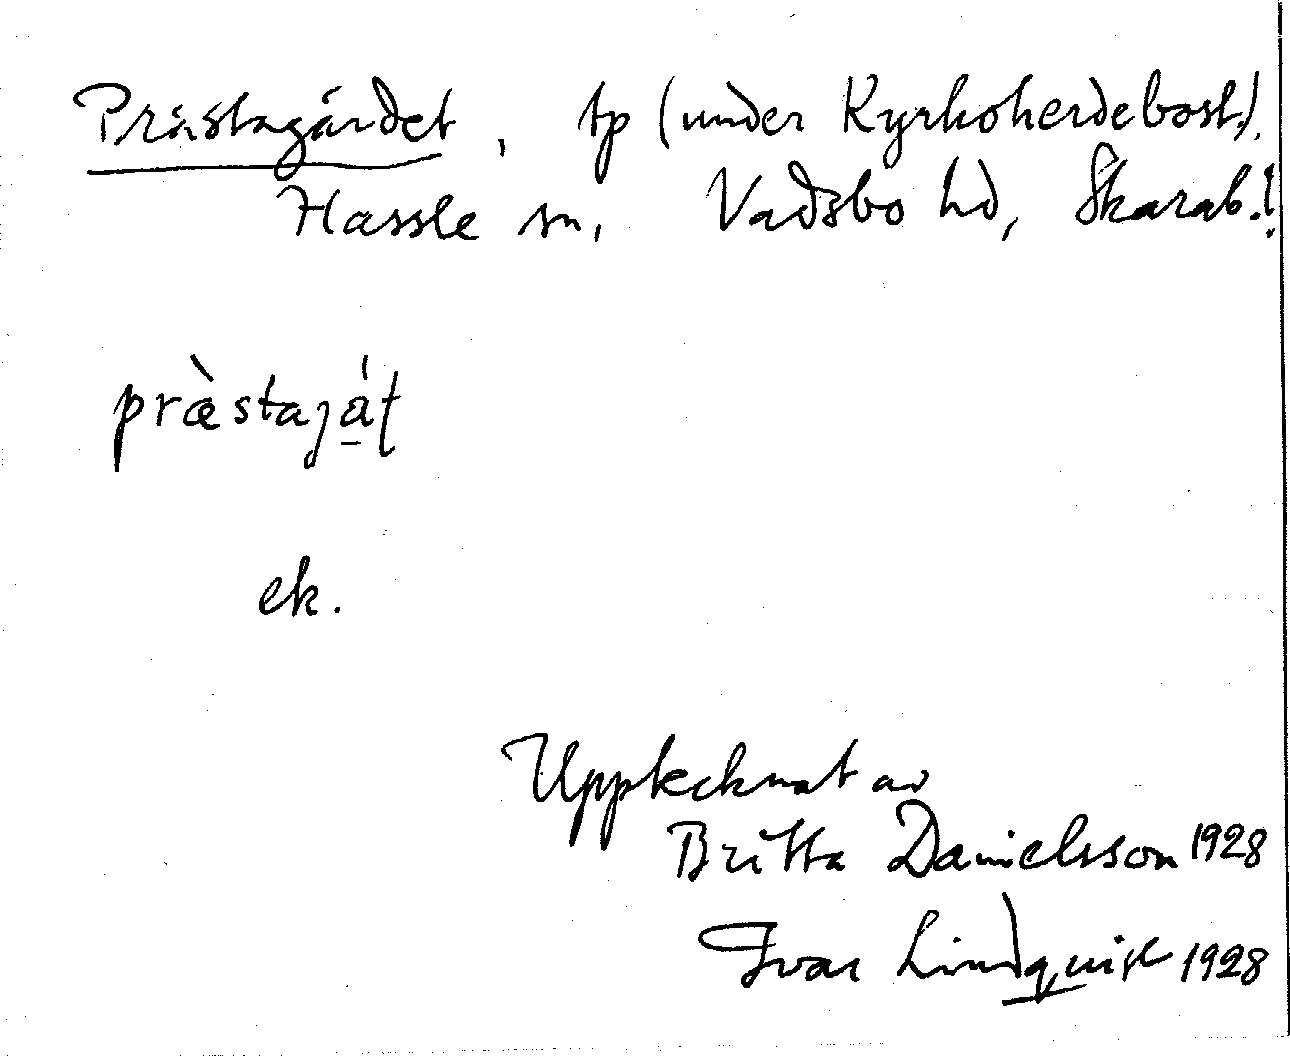 Prästagärdet, tp (under Kyrkoherdebost.).
Hassle sn, Vadsbo hd, Skarab.!
præ̀stajá̠t
ek.
Upptecknat av
Britta Danielsson 1928
Ivar Lindquist 1928